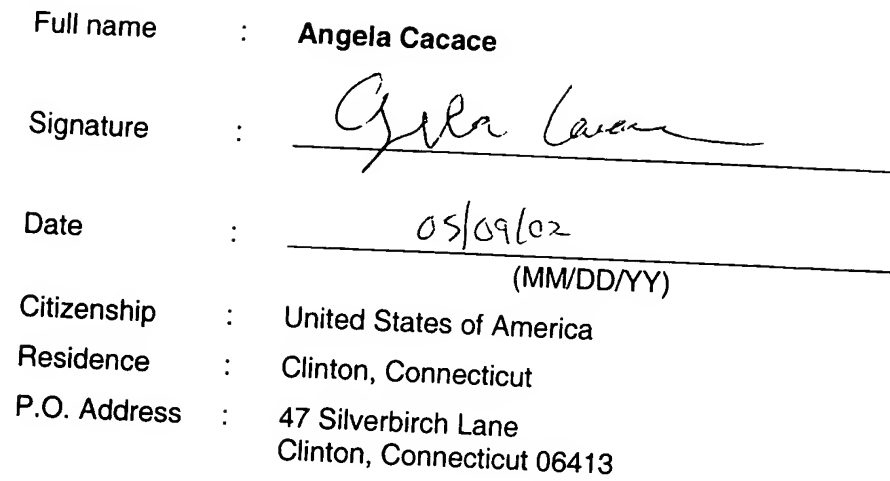 Full name : Angela Cacace
Signature : Angela Cacace
Date : 05/09/02
(MM/DD/YY)
Citizenship : United States of America
Residence : Clinton, Connecticut
P.O. Address : 47 Silverbirch Lane
Clinton, Connecticut 06413